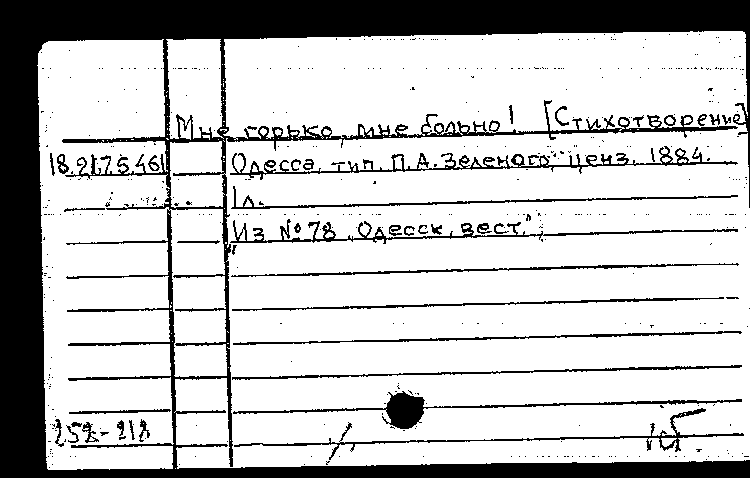 Мне горько, мне больно! [Стихотворение]
18.217.5.461 Одесса, тип. П.А. Зеленого, ценз. 1884.
1л.
Из №78 „Одесск. вест."